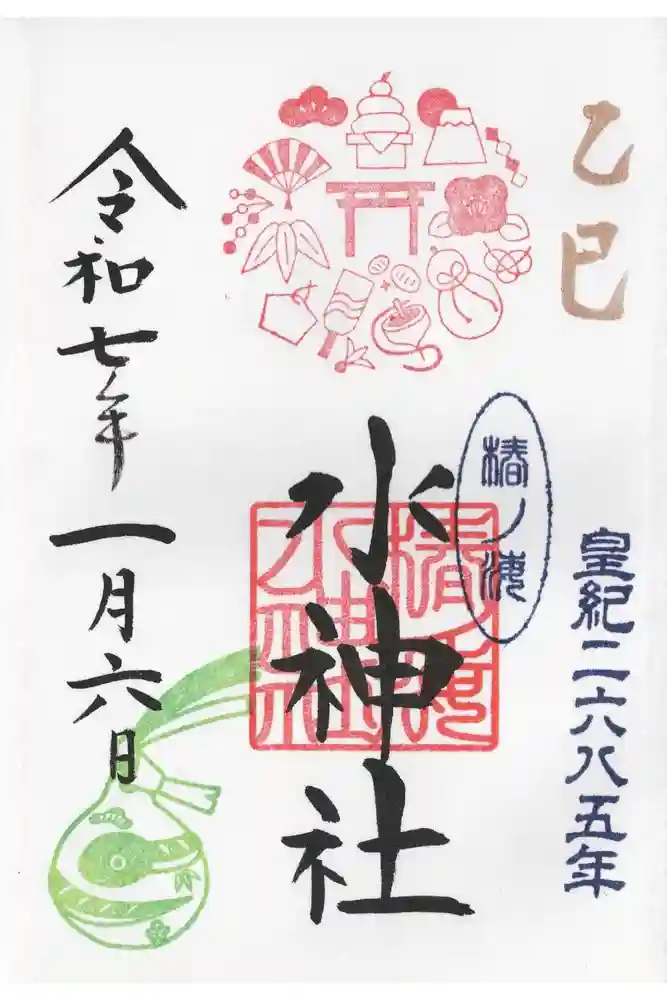 乙巳
皇紀二六八五年
椿ノ海
水神社
令和七年一月六日